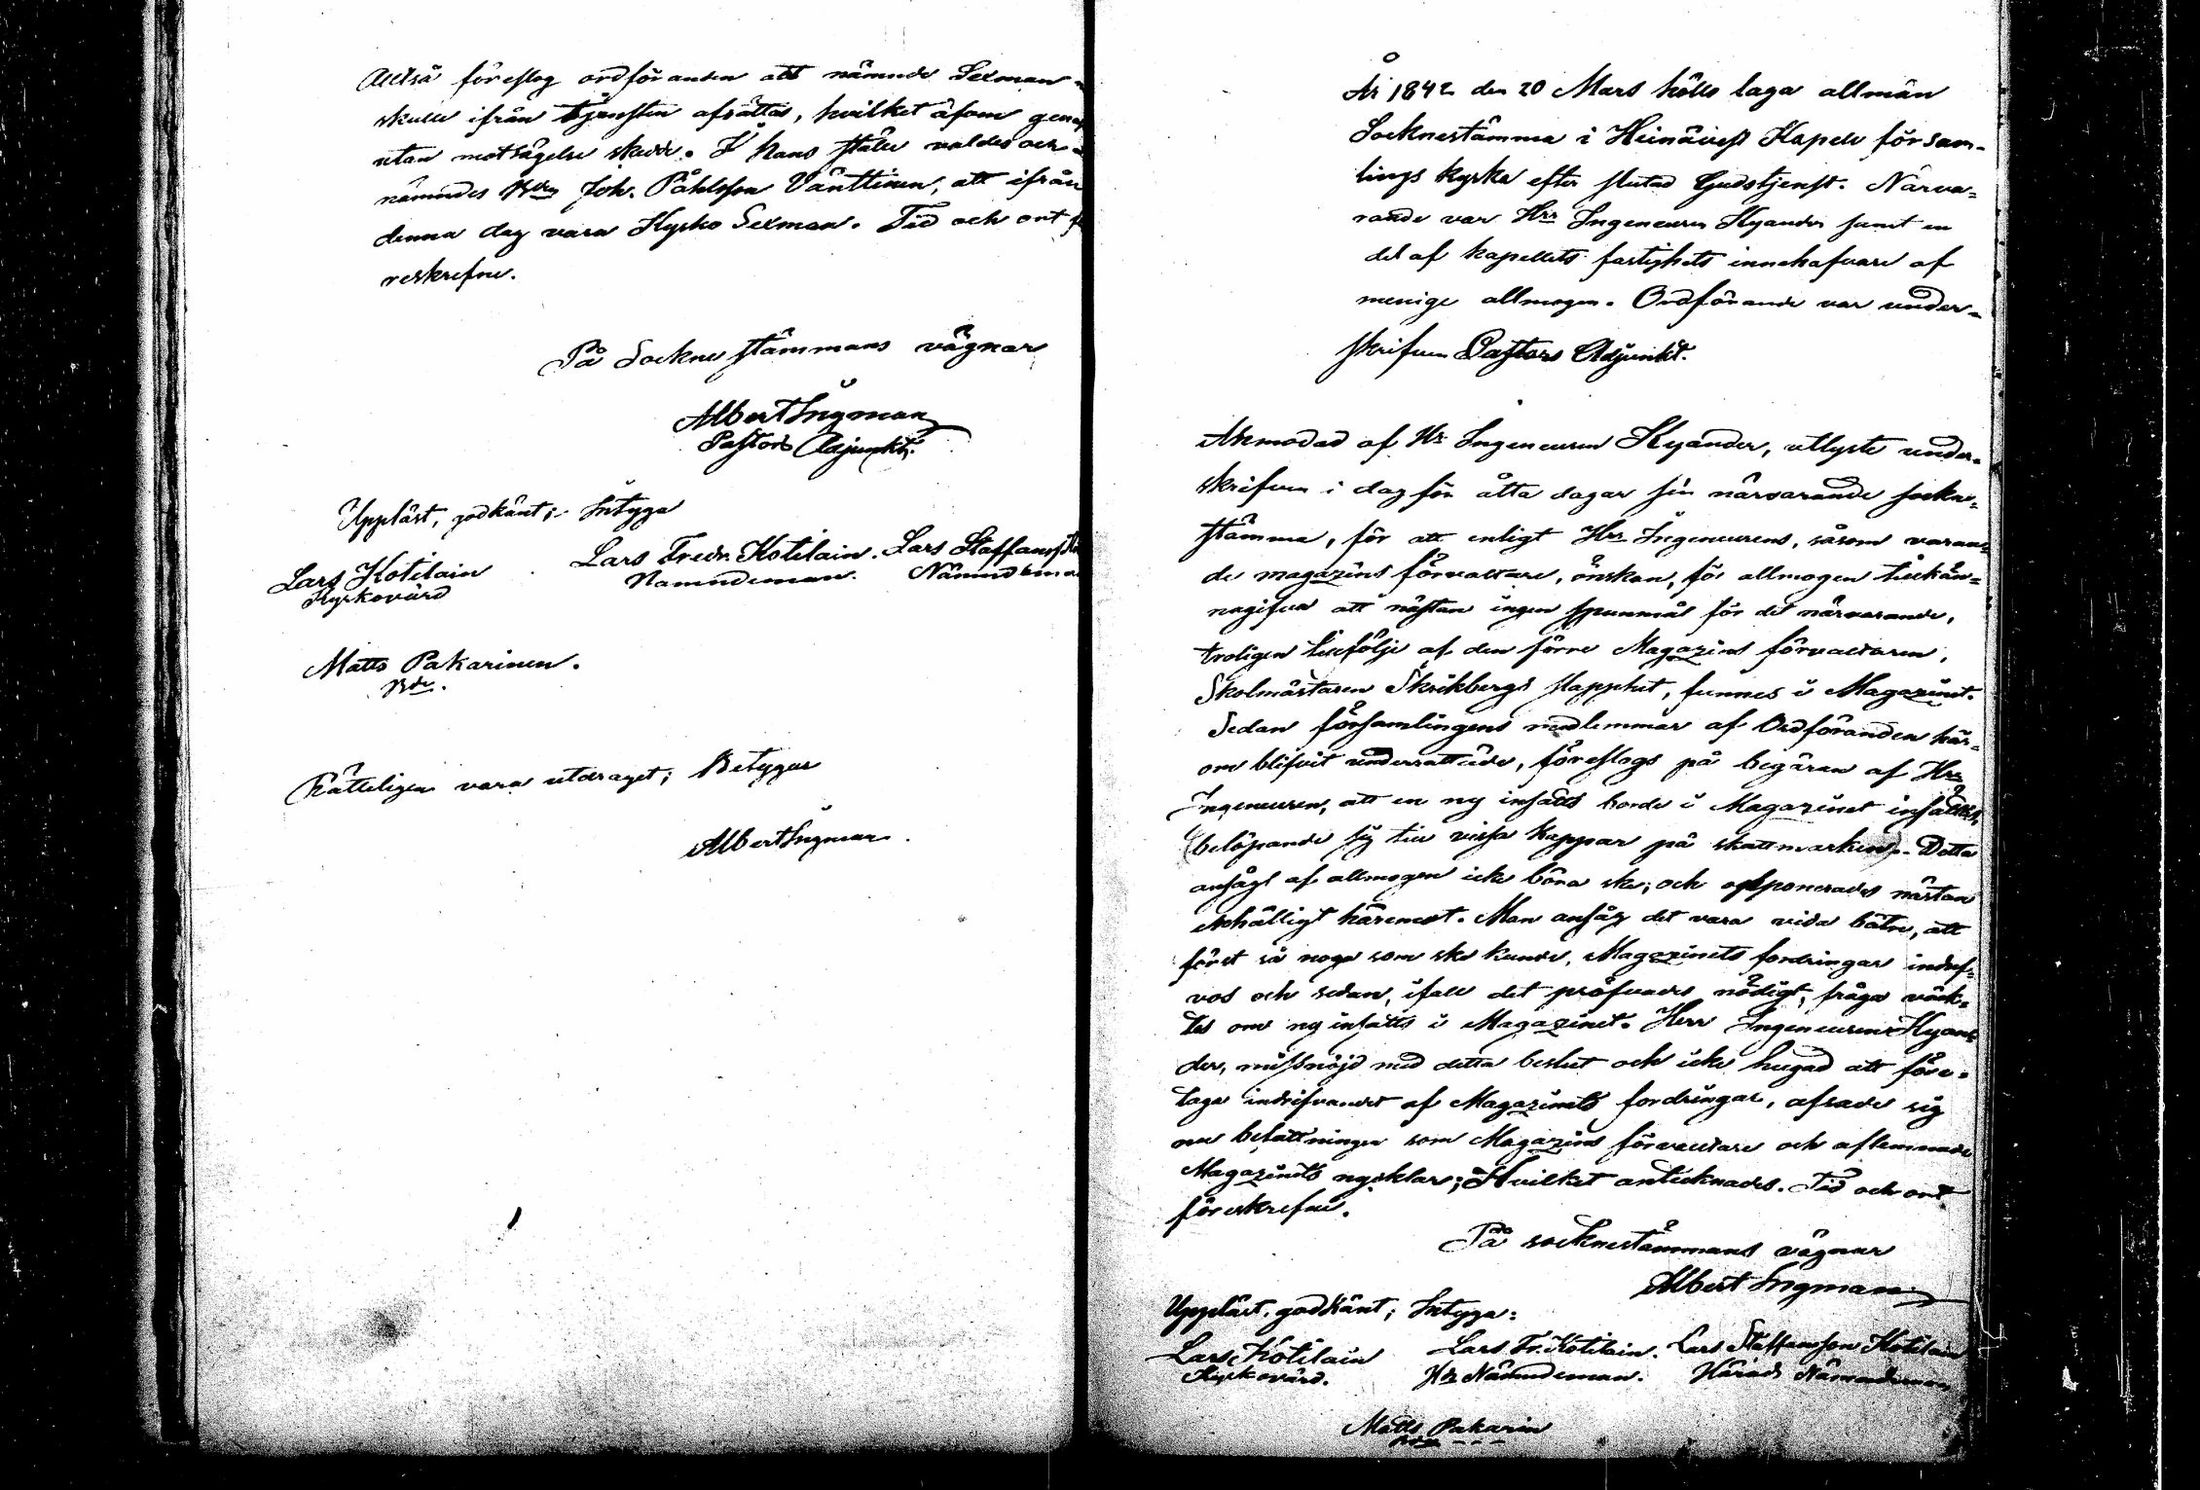 Alltså föreslog ordföranden att nämnde Sexman
skulle ifrån tjensten afsättas, hvilket äfven genast
utan motsägelse skedde. I hans ställe valdes och
nämndes Bdn Joh. Påhlsson Vänttinen, att ifrån
denna dag vara Kyrko Sexman. Tid och ort fö
reskrefne.
På Sockne stämmans vägnar
Albert Ingman
Pastors Adjunkt.
Uppläst, godkänt; Intyga
Lars Kotilain Lars Fredr. Kotilain. Lars Staffansson
Kyrkovärd Nämndeman. Nämndeman
Matts Pakarinen.
Bde.
Rätteligen vara utdraget; Betygar
Albert Ingman.
År 1842 den 20 Mars hölls laga allmän
Socknestämma i Heinävesi Kapell försam-
lings kyrka efter slutad Gudstjenst. Närva-
rande var Hrr Ingeneuren Kyander samt en
del af kapellets fastighets innehafvare af
menige allmogen. Ordförande var under-
skrifven Pastors Adjunkt.
Anmodad af Hr Ingeneuren Kyander, utlyste under-
skrifven i dag för åtta dagar sin närvarande sockne-
stämma, för att enligt Hrr Ingeneurens, såsom varan-
de magazins förvaltare, önskan, för allmogen tillkän-
nagifva att nästan ingen spannmål för det närvarande,
troligen tillfölje af den förre Magazins förvaltaren,
Skolmästaren Skrikbergs slapphet, funnes i Magazinet.
Sedan församlingens medlemmar af Ordföranden här-
om blifvit underrättade, föreslogs på begäran af Hrr
Ingeneuren, att en ny insatts borde i Magazinet insättas,
(belöpande sig till vissa kappar på skattmarken). Detta
ansågs af allmogen icke böra ske; och opponerades nästan
enhälligt häremot. Man ansåg det vara vida bättre, att
först så noga som ske kunde, Magazinets fordringar indref-
vos och sedan, ifall det pröfvades nödigt, fråga väck-
tes om ny insatts i Magazinet. Herr Ingeneuren Kyan-
der, missnöjd med detta beslut och icke hugad att före-
taga indrifvandet af Magazinets fordringar, afsade sig
nu befattningen som Magazins förvaltare och aflemnade
Magazinets nycklar; Hvilket antecknades. Tid och ort
föreskrefne.
På socknestämmans vägnar
Albert Ingman
Uppläst, godkänt; Intyga:
Lars Kotilain Lars Fr. Kotilain. Lars Staffansson Kotilain
Kyrkovärd. Nämndeman. Härads Nämndeman
Matts Pakarin